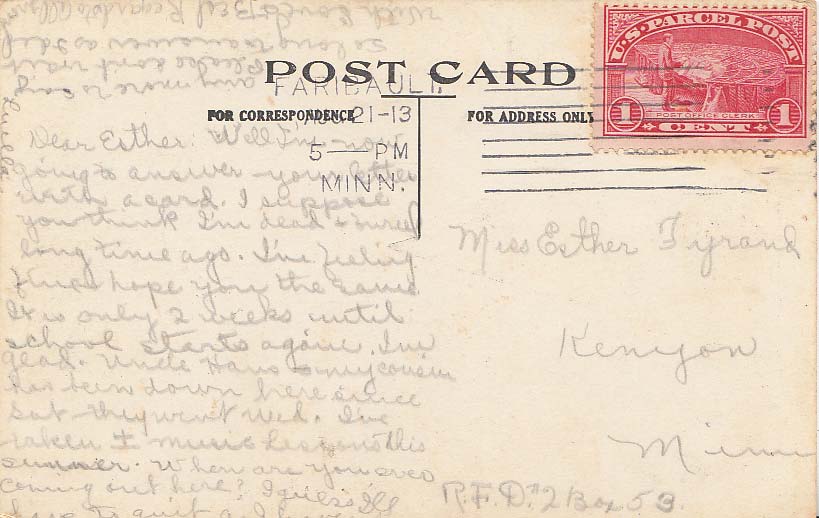 POST CARD
FOR CORRESPONDENCE
FOR ADDRESS ONLY
U.S. PARCEL POST
1 1
POST OFFICE CLERK
CENT
FARIBAULT.
21-13
5 — PM
MINN.
Dear Esther: Well I'm now
going to answer your letter
with a card. I suppose
you think I'm dead &
long time ago. I'm feeling
fine & hope you the same
It is only 2 weeks until
school starts again. I'm
glad. Uncle Hans & my cousin
has been down here since
Sat they went Wed. I've
taken I music lessons this
summer. When are you ever
coming out here? I guess I'll
have to quit as I
any more to say
Please don't wait
so long to answer as I do
With Love & Best Regards to all your
Luella
Miss Esther Fyrand
Kenyon
Minn
R.F.D. #2 Box 53.